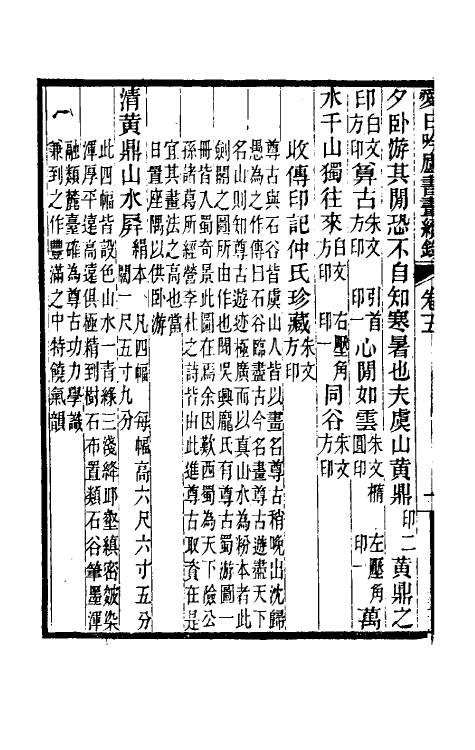 愛日吟廬書畫續錄 卷五 一
夕臥游其閒恐不自知寒暑也夫虞山黃鼎印二黃鼎之
印白文方印算古朱文方印引首印一心閒如雲朱文橢圓印左壓角印一萬
水千山獨往來白文方印右壓角印一同谷朱文方印
收傳印記仲氏珍藏朱文方印
尊古與石谷皆虞山人皆以畫名尊古稍晚出沈歸
愚為之作傳曰石谷臨盡古今名畫尊古遊盡天下
名山則知尊古遊迹極廣而以真山水為粉本者此
劍閣之圖所由作也聞吳興龐氏有尊古蜀游圖一
冊皆入蜀奇景此圖在焉余因歎西蜀為天下險公
孫諸葛所經營李杜之詩皆由此進尊古取資在是
宜其畫法之高也當
日置座隅以供臥游
清黃鼎山水屏絹本凡四幅每幅高六尺六寸五分
闊一尺五寸九分
此四幅皆設色山水一青綠三淺絳邱壑縝密皴染
渾厚平遠高遠俱極精到樹石布置類石谷筆墨渾
融類麓臺確為尊古功力學識
兼到之作豐滿之中特饒氣韻